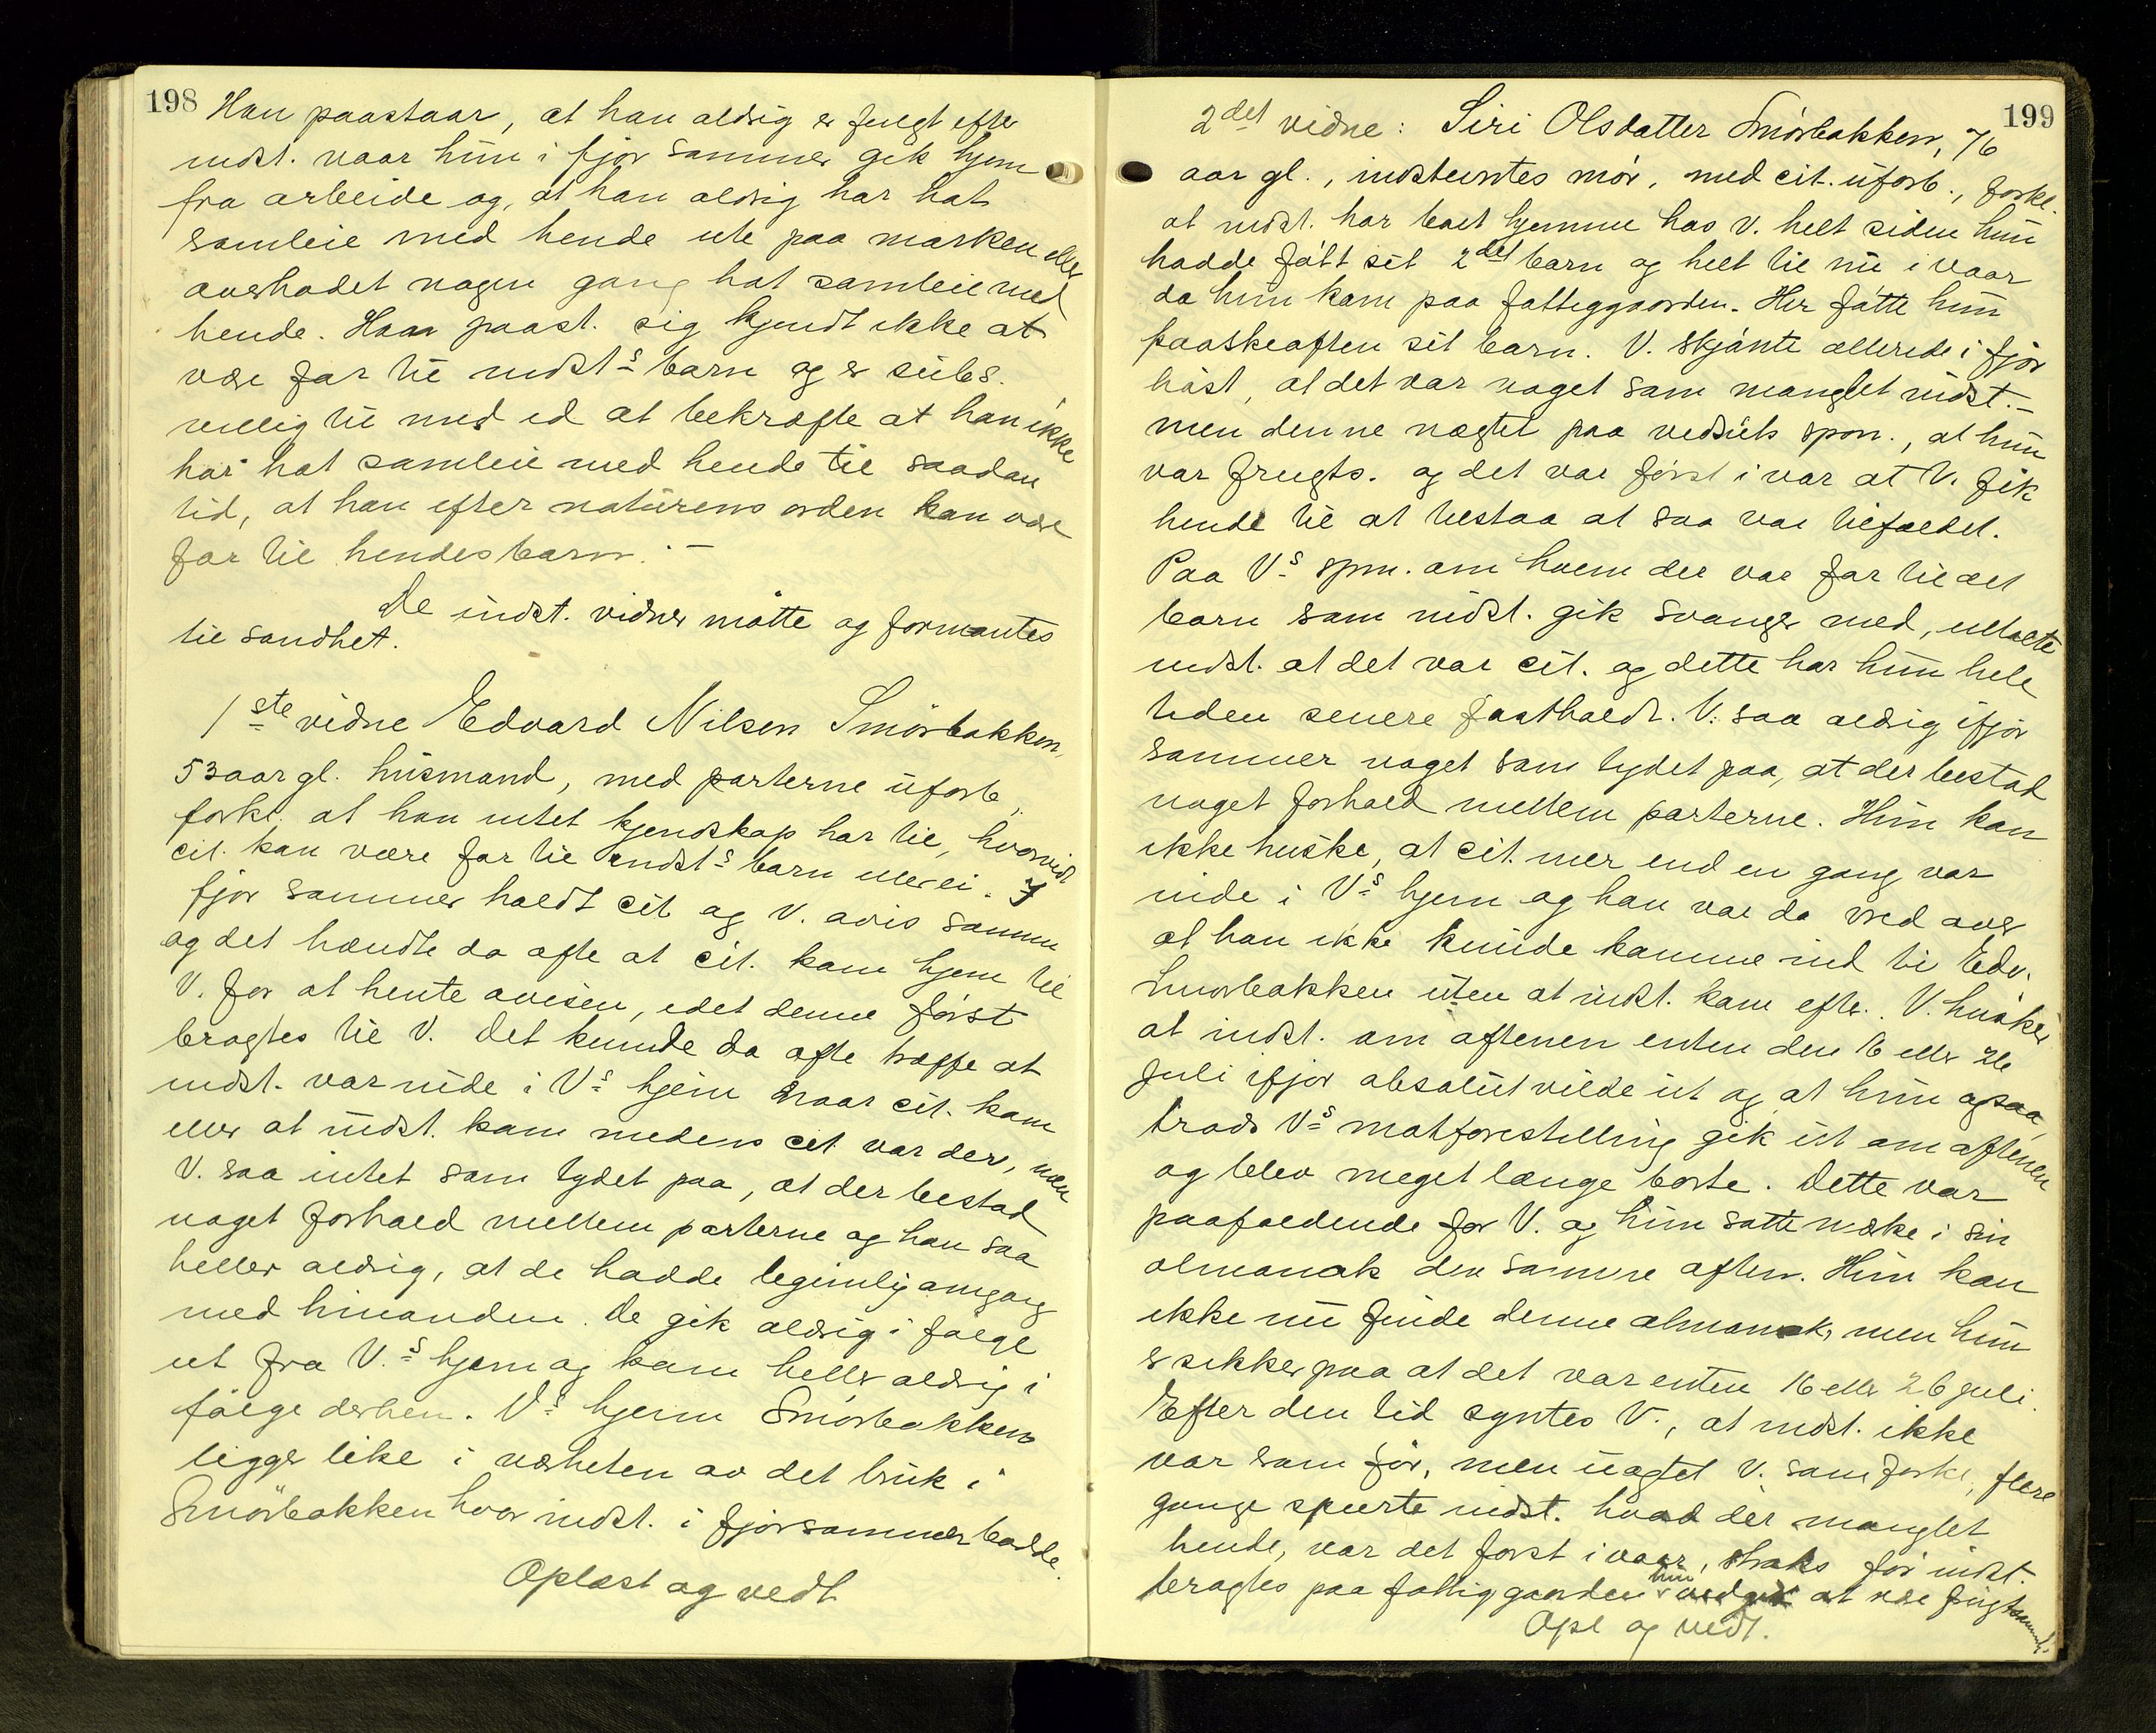 198
Han paastaar, at han aldrig er fulgt efter
indst. naar hun i fjor sommer gik hjem
fra arbeide og, at han aldrig har hat
samleie med hende ute paa marken eller
overhodet nogen gang hat samleie med
hende. Han paast. sig kjendt ikke at
være far til indst.s barn og er subs.
villig til med ed at bekræfte at han ikke
har hat samleie med hende til saadan
tid, at han efter naturens orden kan være
far til hendes barn. –
De indst. vidner møtte og formantes
til sandhet.
1ste vidne Edvard Nilsen Smörbakken,
53 aar gl. husmand, med parterne uforb.,
forkl. at han intet kjendskap har til, hvorvidt
cit. kan være far til indst.s barn eller ei. I
fjor sommer holdt cit. og V. avis sammen
og det hændte da ofte at cit. kom hjem til
V. for at hente avisen, idet denne først
bragtes til V. Det kunde da ofte træffe at
indst. var inde i V.s hjem naar cit. kom
eller at indst. kom medens cit. var der, men
V. saa intet som tydet paa, at der bestod
noget forhold mellem parterne og han saa
heller aldrig, at de hadde legemlig omgang
med hinanden. De gik aldrig i følge
ut fra V.s hjem og kom heller aldrig i
følge derhen. V.s hjem Smörbakken
ligger like i nærheten av det bruk i
Smörbakken hvor indst. i fjor sommer bodde.
Oplæst og vedt.
199
2det vidne: Siri Olsdatter Smörbakken, 76
aar gl., indstevntes mor, med cit. uforb., forkl.
at indst. har boet hjemme hos V. helt siden hun
hadde født sit 2det barn og helt til nu i vaar
da hun kom paa fattiggaarden. Her fødte hun
paaskeaften sit barn. V. skjønte allerede i fjor
høst, at det var noget som manglet indst. –
men denne nægtet paa vedsuts spm., at hun
var frugts. og det var først i vaar at V. fik
hende til at tilstaa at saa var tilfældet.
Paa V.s spm. om hvem der var far til det
barn som indst. gik svanger med, uttalte
indst. at det var cit. og dette har hun hele
tiden senere fastholdt. V. saa aldrig ifjor
sommer noget som tydet paa, at der bestod
noget forhold mellem parterne. Hun kan
ikke huske, at cit. mer end en gang var
inde i V.s hjem og han var da vred over
at han ikke kunde komme ind til Edv.
Smorbakken uten at indst. kom efter. V. husker
at indst. om aftenen enten den 16 eller 26
juli ifjor absolut vilde ut og at hun ogsaa,
trods V.s motforestilling gik ut om aftenen
og blev meget længe borte. Dette var
paafaldende for V. og hun satte mærke i sin
almanak den samme aften. Hun kan
ikke nu finde denne almanak, men hun
er sikker paa at det var enten 16 eller 26 juli.
Efter den tid syntes V., at indst. ikke
var som før, men uagtet V. som forkl., flere
gange spurte indst. hvad der manglet
hende, var det først i vaar, straks før indst.
bragtes paa fattiggaarden hun vedgik at være frugtsommelig.
Opl. og vedt.